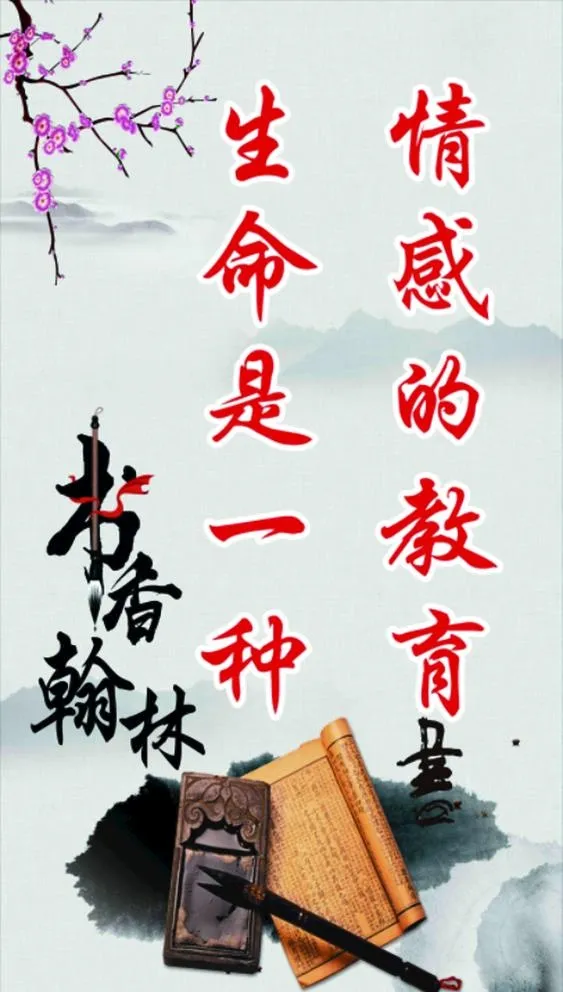 情感的教育
生命是一种
书香
翰林